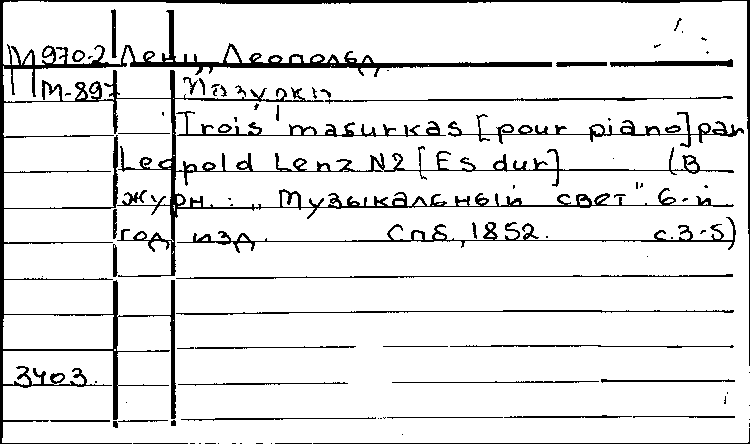 М970-2 Ленц, Леопольд
М-897 Мазурки
Trois masurkas [pour piano] par
Leopold Lenz N2 [Es dur] (В
журн.: „Музыкальный свет". 6-й
год изд. Спб, 1852. с.3-5)
3403